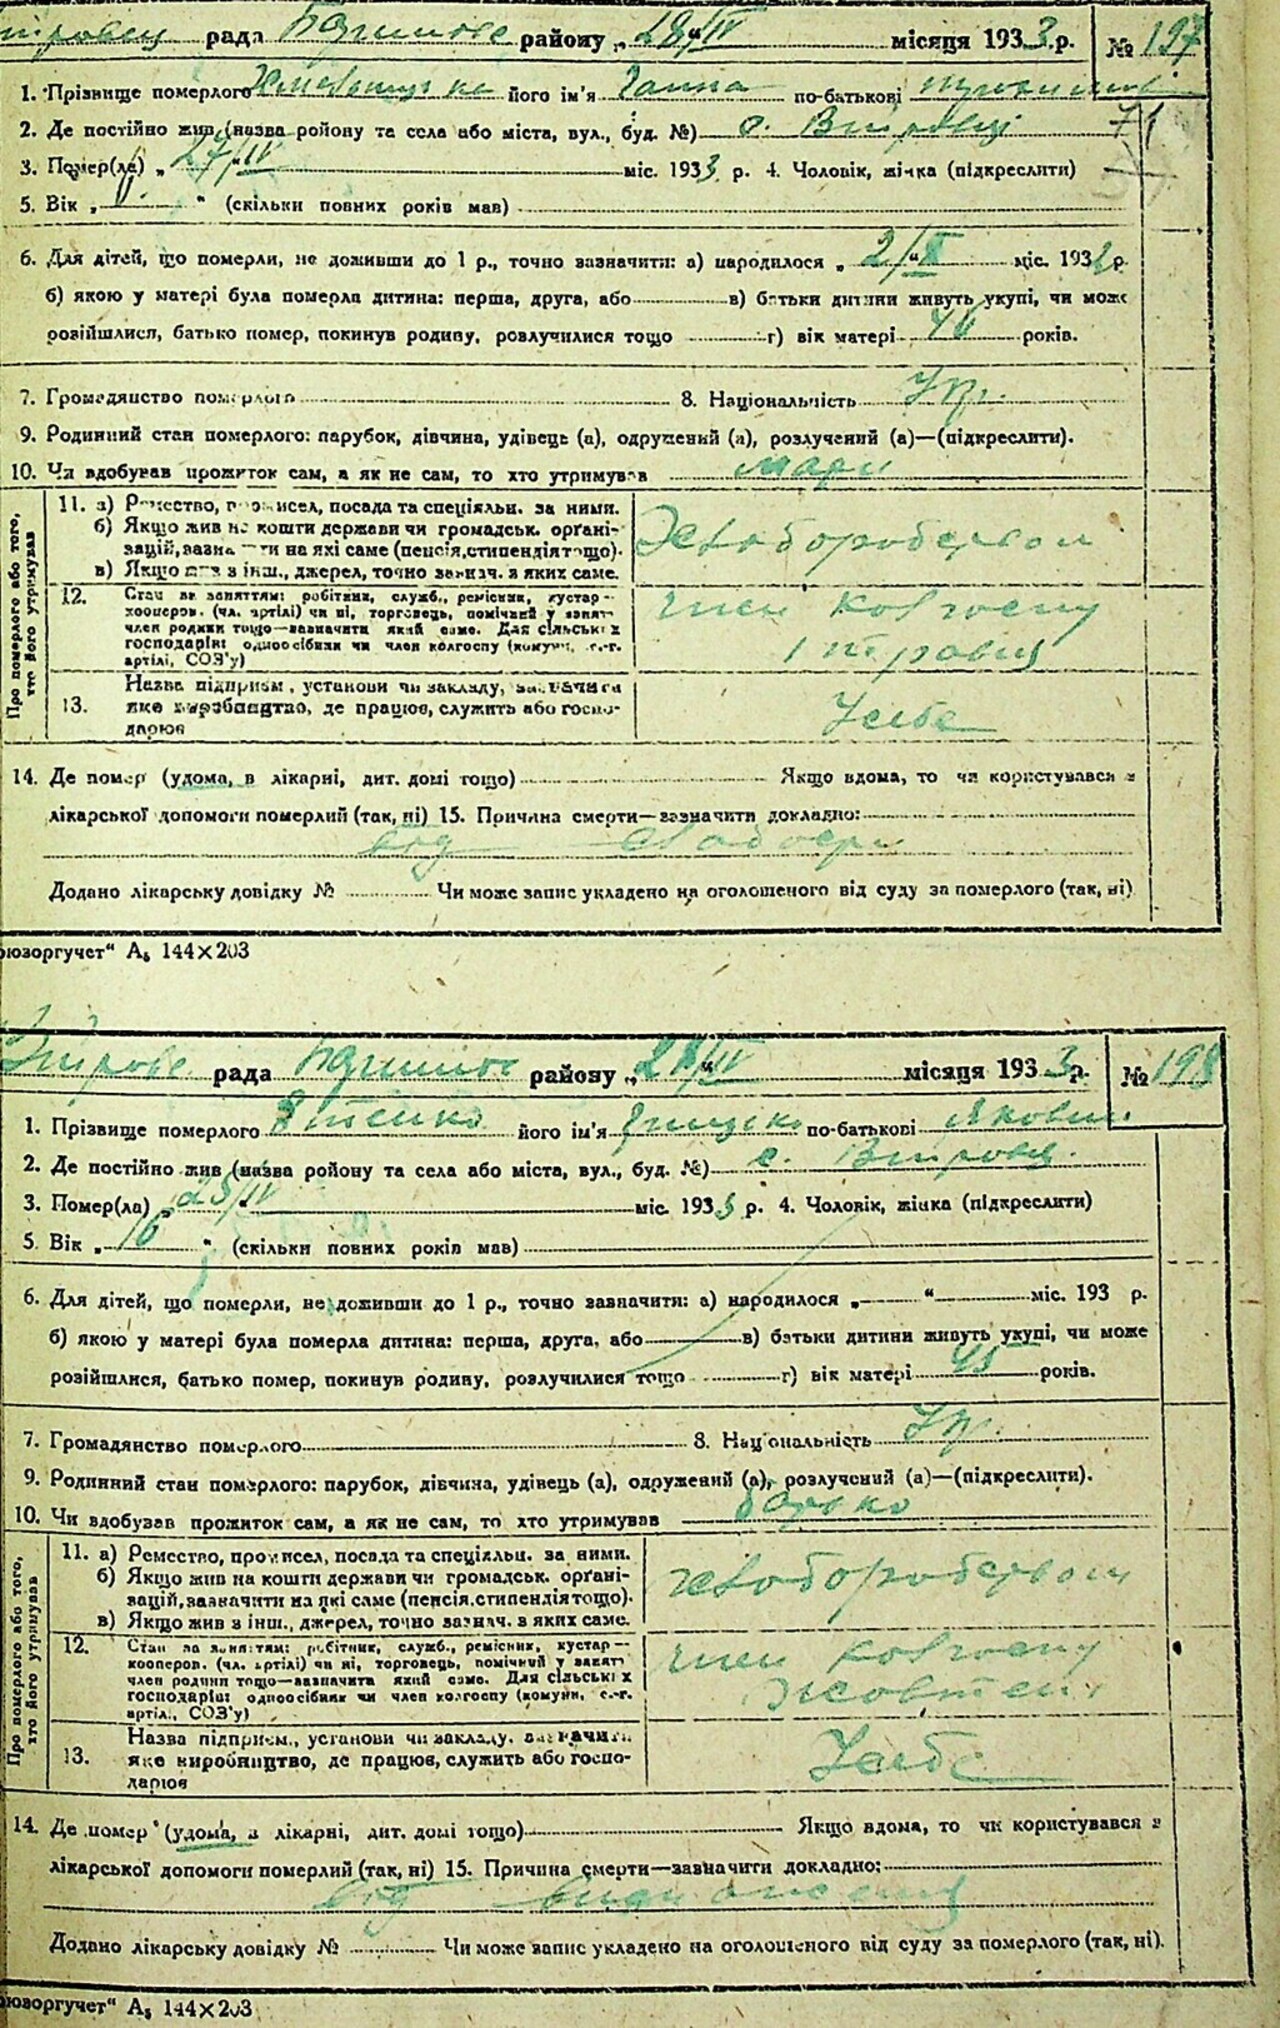 рада району „28/IV місяця 1933 р. № 197
1. Прізвище померлого його ім'я Ганна по-батькові
2. Де постійно жив (назва району та села або міста, вул., буд. №) с. Вітровці 71
3. Помер(ла) „27/IV міс. 1933 р. 4. Чоловік, жінка (підкреслити)
5. Вік „ “ (скільки повних років мав)
6. Для дітей, що померли, не доживши до 1 р., точно зазначити: а) народилося „2/“X міс. 1932 р.
б) якою у матері була померла дитина: перша, друга, або в) батьки дитини живуть укупі, чи може
розійшлися, батько помер, покинув родину, розлучилися тощо г) вік матері 46 років.
7. Громадянство померлого 8. Національність Укр.
9. Родинний стан померлого: парубок, дівчина, удівець (а), одружений (а), розлучений (а)—(підкреслити).
10. Чи вдобував прожиток сам, а як не сам, то хто утримував мари
Про померлого або того, хто його утримував
11. а) Ремество, промисел, посада та спеціяльн. за ними.
б) Якщо жив на кошти держави чи громадськ. орґані-
зацій, зазначити на які саме (пенсія, стипендія тощо).
в) Якщо жив з інш., джерел, точно зазнач. з яких саме.
Хлоборобством
12. Стан за заняттям: робітник, служб., ремісник, кустар—
кооперов. (чл. артілі) чи ні, торговець, помічний у занят.
член родини тощо—зазначити який саме. Для сільських
господарів: одноосібник чи член колгоспу (комуни, с.-г.
артілі, СОЗ'у)
член колгоспу
13. Назва підприєм., установи чи закладу, зазначити
яке виробництво, де працює, служить або госпо-
дарює
У себе
14. Де помер (удома, в лікарні, дит. домі тощо) Якщо вдома, то чи користувався з
лікарської допомоги померлий (так, ні) 15. Причина смерти—зазначити докладно:
від
Додано лікарську довідку № Чи може запис укладено на оголошеного від суду за померлого (так, ні)
юзоргучет“ А₅ 144×203
рада району „28/“IV місяця 1933 р. № 198
1. Прізвище померлого його ім'я Грицько по-батькові Якович
2. Де постійно жив (назва району та села або міста, вул., буд. №) с. Вітровці
3. Помер(ла) „ міс. 1933 р. 4. Чоловік, жінка (підкреслити)
5. Вік „16 “ (скільки повних років мав)
6. Для дітей, що померли, не доживши до 1 р., точно зазначити: а) народилося „ “ міс. 193 р.
б) якою у матері була померла дитина: перша, друга, або в) батьки дитини живуть укупі, чи може
розійшлися, батько помер, покинув родину, розлучилися тощо г) вік матері 45 років.
7. Громадянство померлого 8. Національність Укр.
9. Родинний стан померлого: парубок, дівчина, удівець (а), одружений (а), розлучений (а)—(підкреслити).
10. Чи вдобував прожиток сам, а як не сам, то хто утримував батько
Про померлого або того, хто його утримував
11. а) Ремество, промисел, посада та спеціяльн. за ними.
б) Якщо жив на кошти держави чи громадськ. орґані-
зацій, зазначити на які саме (пенсія, стипендія тощо).
в) Якщо жив з інш., джерел, точно зазнач. з яких саме.
хлоборобством
12. Стан за заняттям: робітник, служб., ремісник, кустар—
кооперов. (чл. артілі) чи ні, торговець, помічний у занят.
член родини тощо—зазначити який саме. Для сільських
господарів: одноосібник чи член колгоспу (комуни, с.-г.
артілі, СОЗ'у)
член колгоспу
Жовтень
13. Назва підприєм., установи чи закладу, зазначити
яке виробництво, де працює, служить або госпо-
дарює
У себе
14. Де помер (удома, в лікарні, дит. домі тощо) Якщо вдома, то чи користувався з
лікарської допомоги померлий (так, ні) 15. Причина смерти—зазначити докладно:
від виснаження
Додано лікарську довідку № Чи може запис укладено на оголошеного від суду за померлого (так, ні).
юзоргучет“ А₅ 144×203